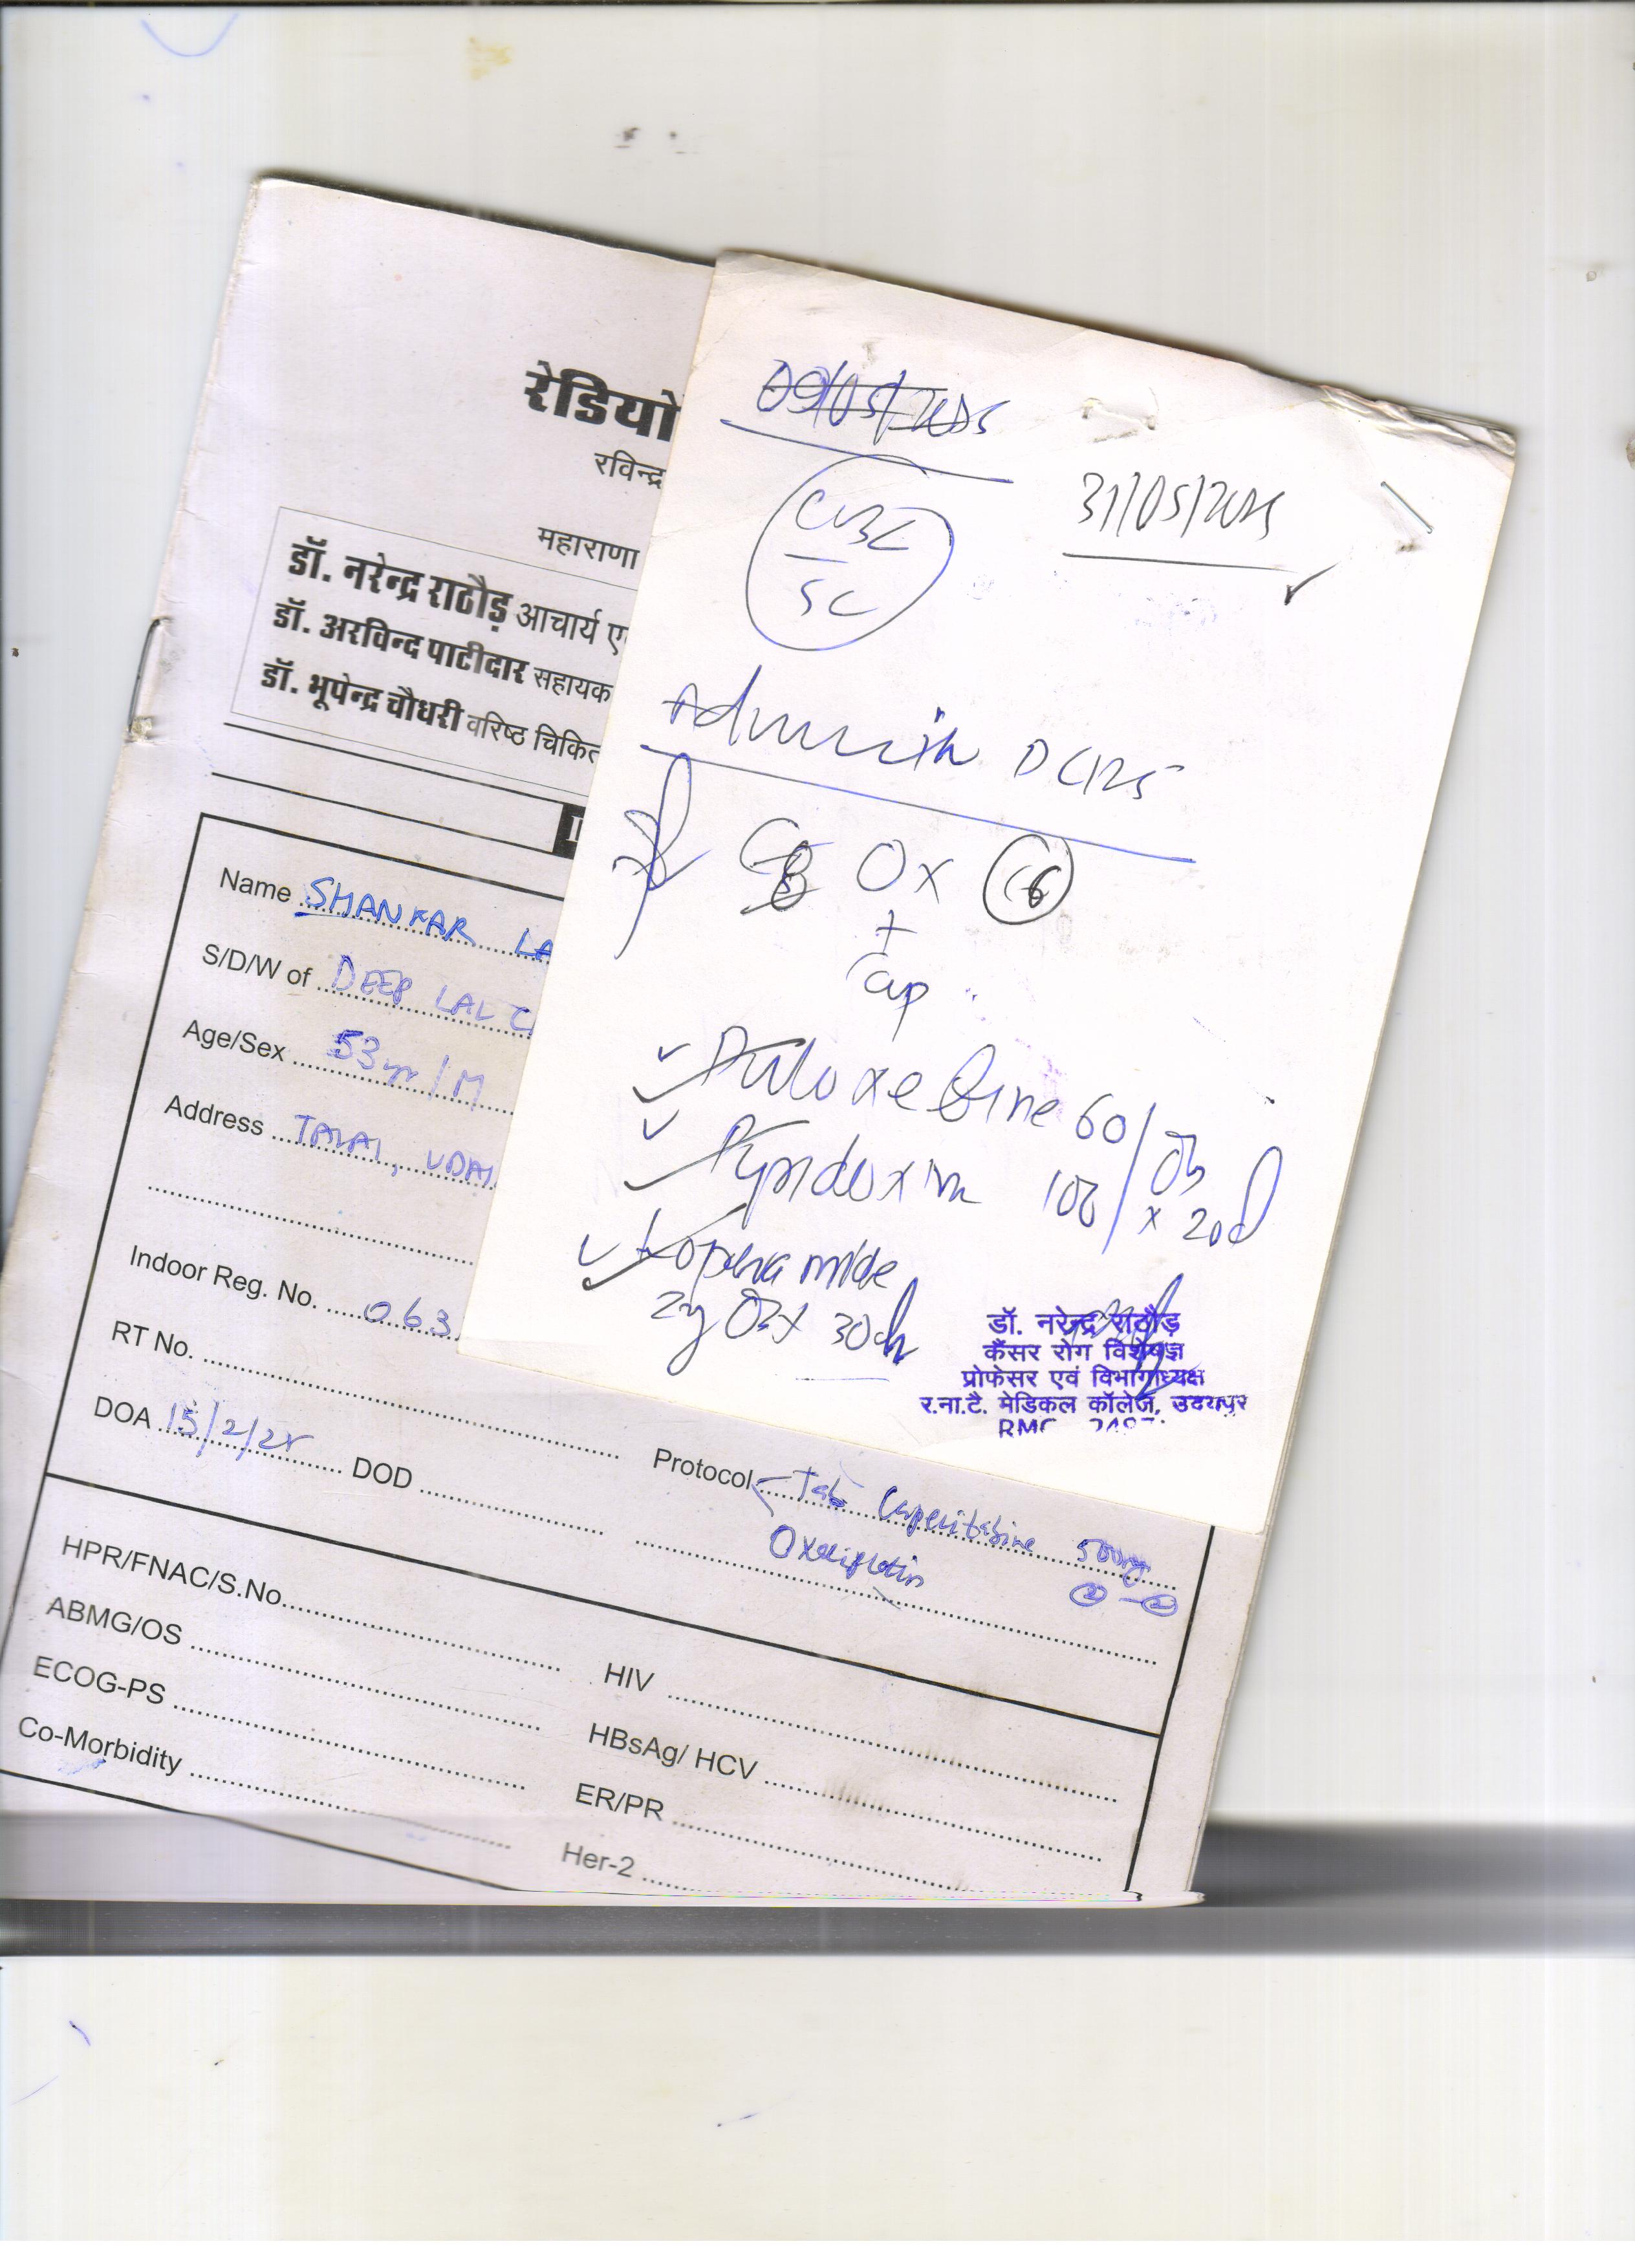 रेडियो
रविन्द्र
महाराणा
डॉ. नरेन्द्र राठौड़ आचार्य
डॉ. अरविन्द पाटीदार सहायक
डॉ. भूपेन्द्र चौधरी वरिष्ठ
Name SHANKAR
S/D/W of DEEP LAL
Age/Sex 53yr / M
Address
Indoor Reg. No. 063
RT No.
DOA 15/2/25 DOD
Protocol Tab Capecitabine 500mg
Oxaliplatin 2 - 2
HPR/FNAC/S.No.
ABMG/OS
ECOG-PS
Co-Morbidity
HIV
HBsAg/ HCV
ER/PR
Her-2
09/05/2025
31/05/2025
CBC
SC
Ox C6
+
Cap
Duloxetine 60/
Pyridoxin 100/ x 20d
Loperamide
30
डॉ. नरेन्द्र राठौड़
कैंसर रोग विशेषज्ञ
प्रोफेसर एवं विभागाध्यक्ष
र.ना.टै. मेडिकल कॉलेज, उदयपुर